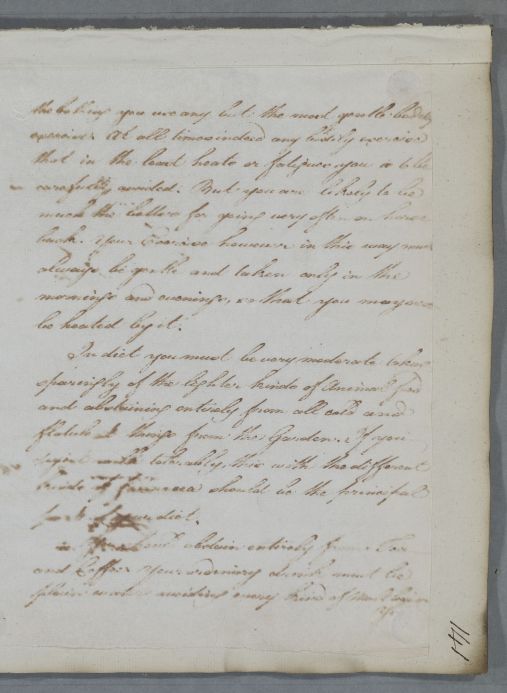 the bathing you use any but the most gentle bodily
exercise. At all times indeed any bodily exercise
that in the least heats or fatigues you is to be
carefully avoided. But you are likely to be
much the better for going very often on horse
back. Your Exercise however in this way must
always be gentle and taken only in the
mornings and evenings, so that you may not
be heated by it.
In diet you must be very moderate taking
sparingly of the lighter kinds of Animal food
and abstaining entirely from all cold and
flatulent things from the Garden. If you
milk tolerably, this with the different
kinds of farinacea should be the principal
part of your diet.
abstain entirely from Tea
and Coffee. Your ordinary drink must be
plain water avoiding every kind of
141